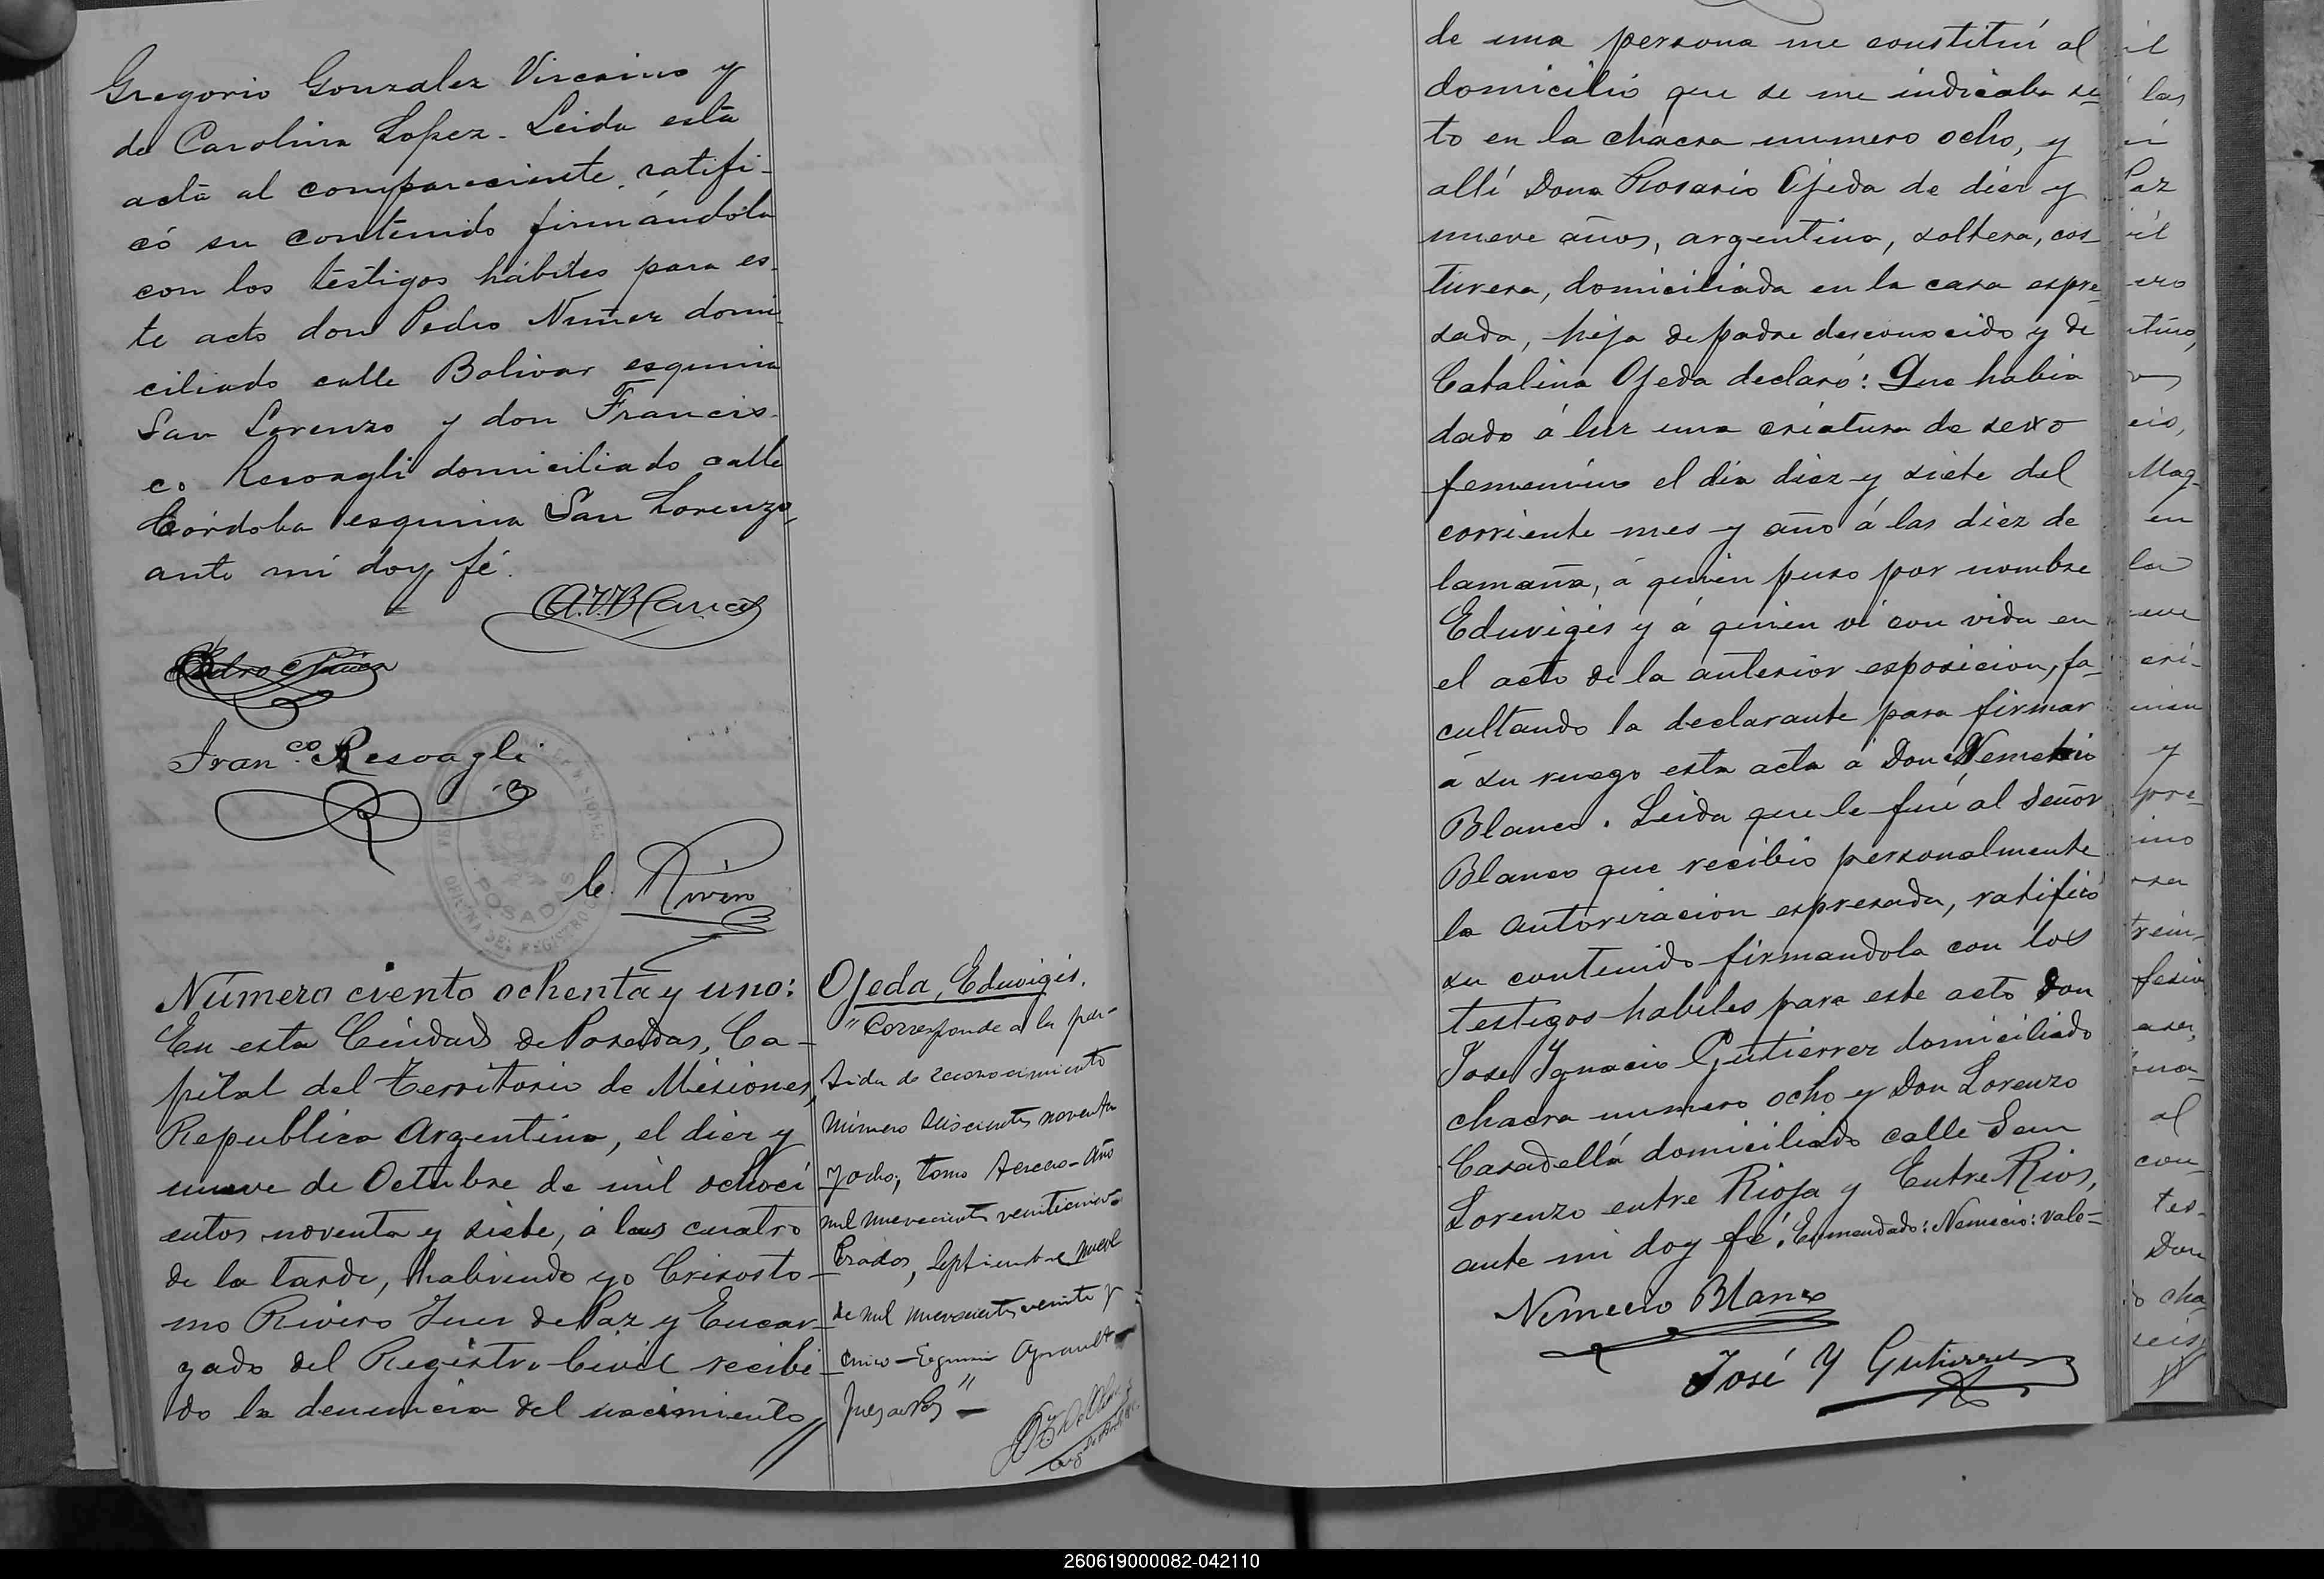 Gregorio Gonzalez Viscaino y
de Carolina Lopez. Leida esta
acta al compareciente, ratifi-
có su contenido firmándola
con los testigos hábiles para es-
te acto don Pedro Nuñez domi-
ciliado calle Bolivar esquina
San Lorenzo y don Francis-
co Resoagli domiciliado calle
Córdoba esquina San Lorenzo,
ante mi doy fé.
Pedro Nuñez
Fran.co Resoagli
POSADAS
C. Rivero
Número ciento ochenta y uno:
En esta Ciudad de Posadas, Ca-
pital del Territorio de Misiones,
Republica Argentina, el diez y
nueve de Octubre de mil ochoci
entos noventa y siete, á las cuatro
de la tarde, habiendo yo Crisosto-
mo Rivero Juez de Paz y Encar-
gado del Registro Civil recibi-
do la denuncia del nacimiento
Ojeda, Eduvigis.
"Corresponde a la par-
tida de reconocimiento
número seiscientos noventa
y ocho, tomo tercero - Año
mil novecientos veinticinco
Posadas, Septiembre nueve
de mil novecientos veinte y
cinco -
Juez de Paz" -
de una persona me constituí al
domicilio que se me indicaba si-
to en la chacra numero ocho, y
allí Dona Rosario Ojeda de diez y
nueve años, argentina, soltera, cos
turera, domiciliada en la casa espre-
sada, hija de padre desconocido y de
Catalina Ojeda declaró: Que habia
dado á luz una criatura de sexo
femenino el dia diez y siete del
corriente mes y año á las diez de
la maña, á quien puso por nombre
Eduvigis y á quien vi con vida en
el acto de la anterior esposicion, fa-
cultando la declarante para firmar
á su ruego esta acta á Don Nemecio
Blanco. Leida que le fué al Señor
Blanco que recibió personalmente
la autorizacion espresada, ratificó
su contenido firmandola con los
testigos habiles para este acto Don
Jose Ygnacio Gutierrez domiciliado
chacra numero ocho y Don Lorenzo
Casadellá domiciliado calle San
Lorenzo entre Rioja y Entre Rios,
ante mi doy fé. Enmendado: Nemecio: vale=
Nemecio Blanco
José Y Gutierrez
260619000082-042110